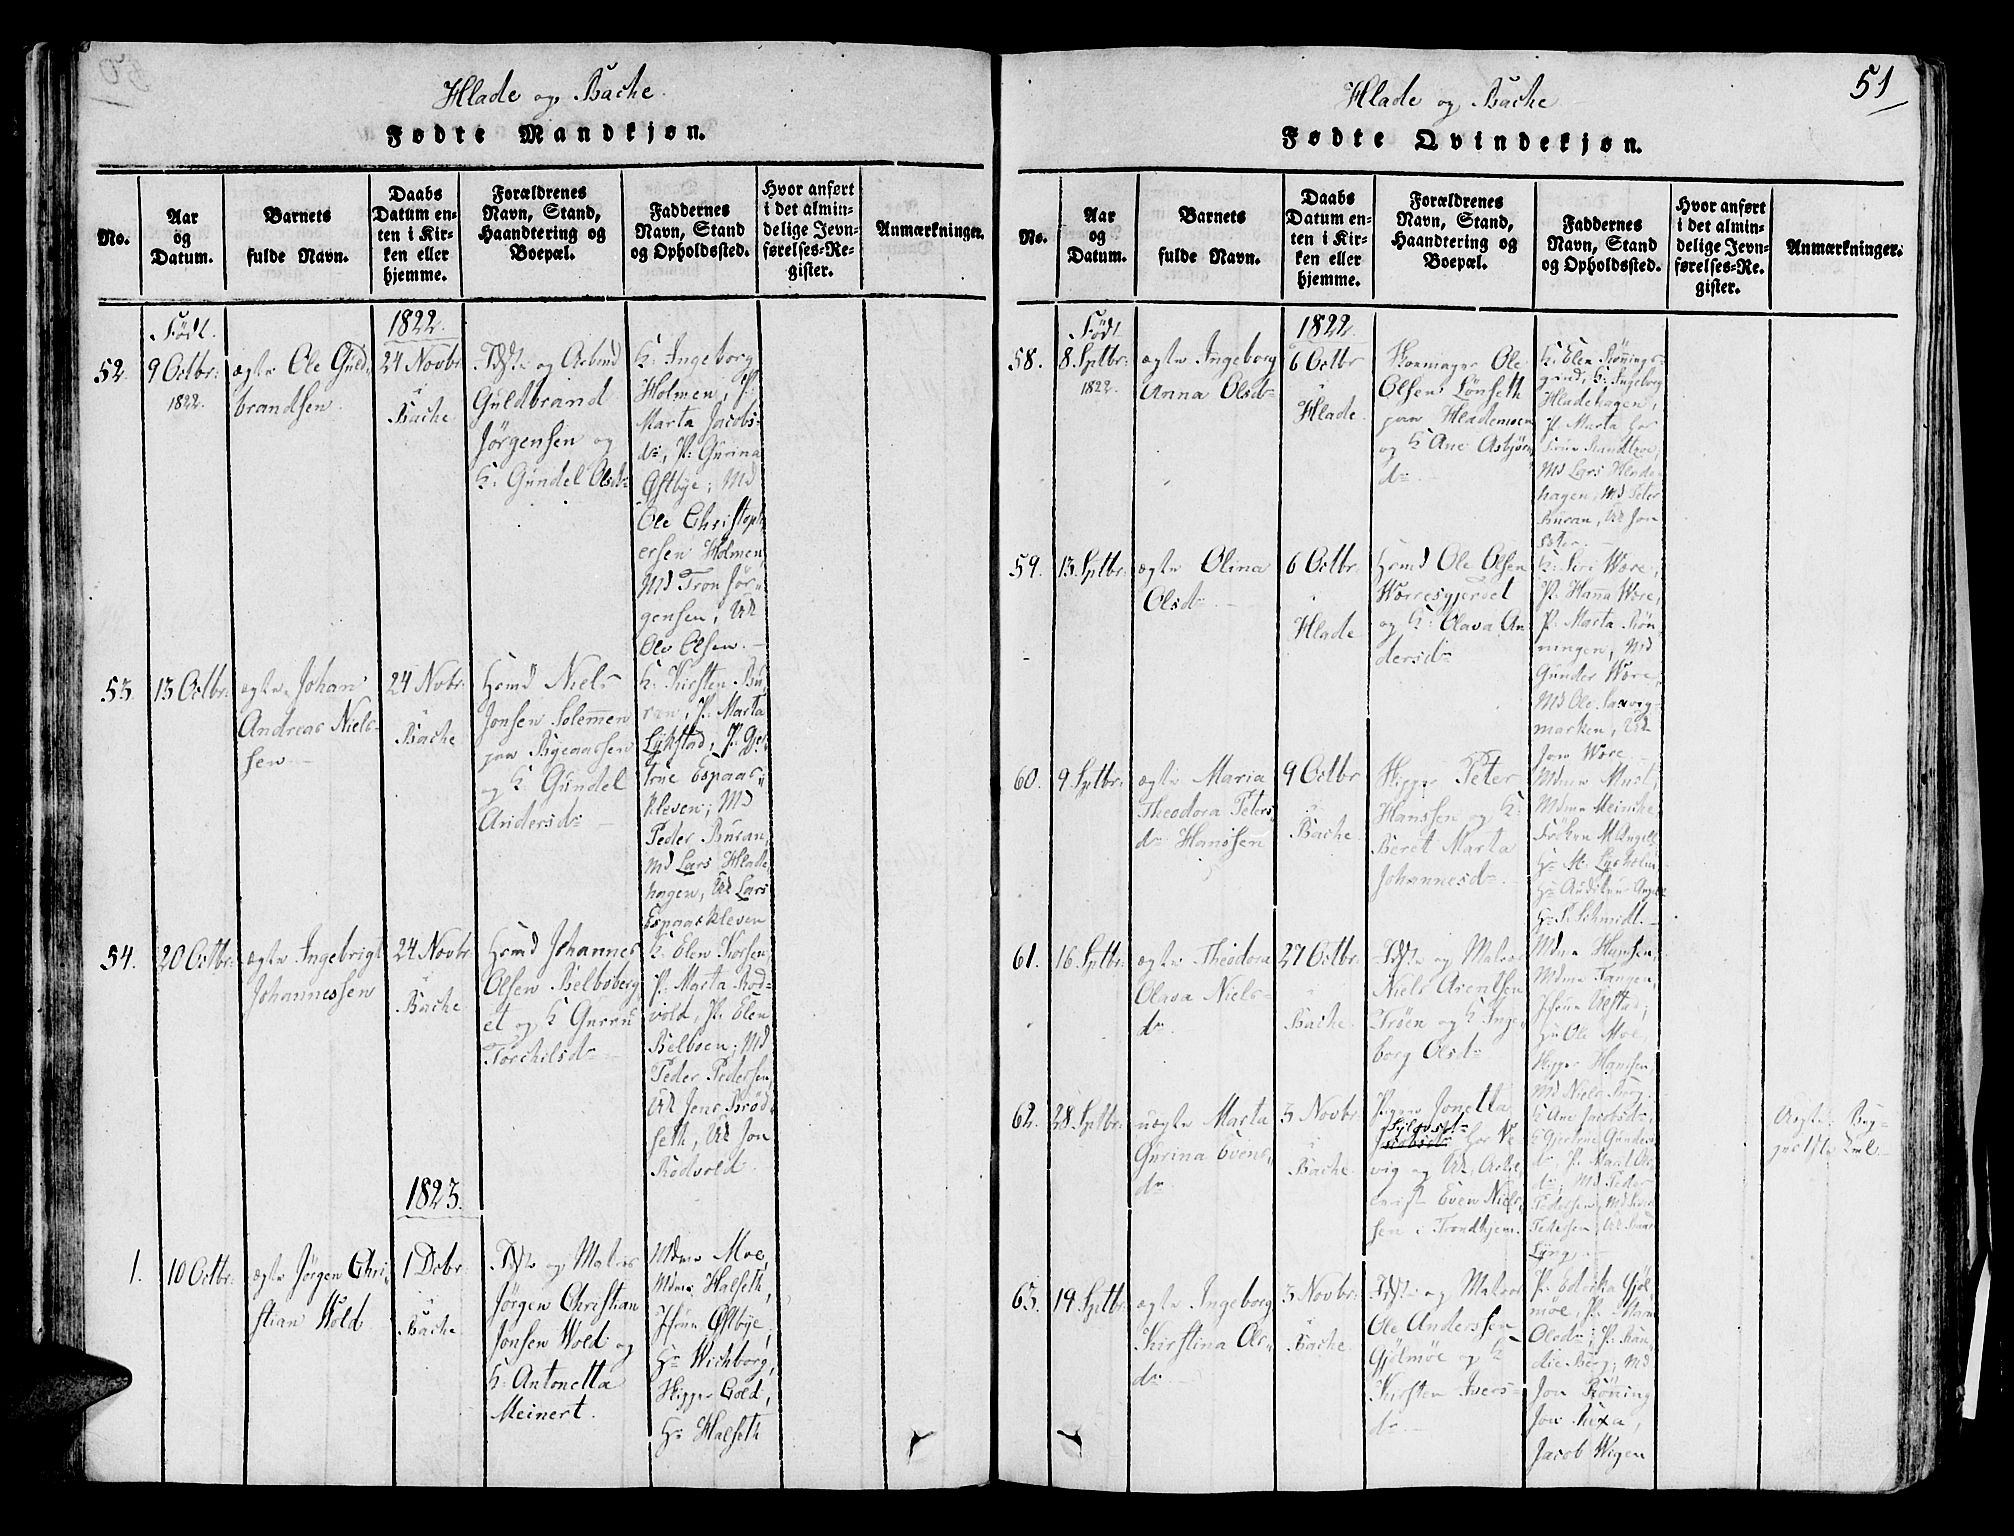 Hlade og Bache.
Fødte Mandkjøn.
No.
Aar
og
Datum.
Barnets
fulde Navn.
Daabs
Datum en-
ten i Kir-
ken eller
hjemme.
Forældrenes
Navn, Stand,
Haandtering og
Boepæl.
Faddernes
Navn, Stand
og Opholdssted.
Hvor anført
i det almin-
delige Jevn-
førelses-Re-
gister.
Anmærkninger.
Født.
1822.
52.
9 Octbr:
1822.
ægte Ole Guld-
brandsen.
24 Novbr
i
Bache
og
Guldbrand
Jørgensen og
K: Gundel Olsdr
K: Ingeborg
Holmen, P:
Marta Jacobs-
dr, P: Gurina
Østbye; Md
Ole Christoph-
ersen Holmen,
Md Tron Jør-
gensen, Uk
Ole Olsen.
53.
13 Octbr:
ægte Johan
Andreas Niels-
sen
24 Novbr.
i
Bache
Hsmd Niels
Jonsen Solemen
paa Bygaassen
og K: Gundel
Andersdr
K: Kirsten Bu-
ran, P: Marta
Lykstad, P: Gje-
true Espaas-
kleven; Md
Peder Buran,
Md Lars Hlade-
hagen, Uk Lars
Espaaskleven
54.
20 Octbr:
ægte Ingebrigt
Johannessen
24 Novbr
i
Bache
Hsmd Johannes
Olsen Belboberg-
et og K Guruu
Torchilsdr
K: Elen Korsen,
P: Marta Rod-
vold, P: Elen
Belboen; Md
Peder Pedersen,
Uk Jens Brød-
seth, Uk Jon
Rodvold.
1823.
1.
10 Octbr:
ægte Jørgen Chri-
stian Wold
1 Decbr
i
Bache
og Matros
Jørgen Christian
Jonsen Wold og
K: Antonetta
Meinert.
Mdme Moe,
Mdme Halseth,
Jfrue Østbye,
Hr Wichborg,
Skipper Gold,
Hr Halseth
51
Hlade og Bache
Fødte Qvindekjøn.
No.
Aar
og
Datum.
Barnets
fulde Navn.
Daabs
Datum en-
ten i Kir-
ken eller
hjemme.
Forældrenes
Navn, Stand,
Haandtering og
Boepæl.
Faddernes
Navn, Stand
og Opholdssted.
Hvor anført
i det almin-
delige Jevn-
førelses-Re-
gister.
Anmærkninger.
Født
1822.
58.
8. Sptbr:
1822.
ægte Ingeborg
Anna Olsdr
6 Octbr
i
Hlade.
Skomager Ole
Olsen Lønseth
paa Hlademoen
og K: Ane Asbjørn-
dr
K: Elen Rønnings-
grind, K: Ingeborg
Hladehagen,
P: Marta hos
Md Lars Hlade-
hagen, Md Peter
Buran, Uk Jon
59.
13. Sptbr:
ægte Olina
Olsdr
6 Octbr.
i
Hlade
Hsmd Ole Olsen
Worresgjerdet
og K: Olava An-
dersdr
K: Seri Wore,
P: Hanna Wore,
P: Marta Røn-
ningen, Md
Gunder Wore,
Md Ole
marken, Uk
Jon Wore
60.
9 Sptbr:
ægte Maria
Theodora Peters-
dr Hanssen
9 Octbr
i
Bache
Skipper Peter
Hanssen og K:
Beret Marta
Johannesdr
Mdme Must,
Mdme Meincke,
Frøken M Angell,
Hr M: Lysholm
Hr Auditeur Angell
Hr P: Schmidt.
61.
16. Sptbr:
ægte Theodora
Olava Niels-
dr.
27 Octbr
i
Bache.
og Matros
Niels Arentsen
Trøen og K: Inge-
borg Olsdr
Mdme Hansen,
Mdme Tangen,
Jfrue Uestad;
Hr Ole Moe,
Skipper Hansen,
Md Niels Berg.
62.
28. Sptbr:
uægte Marta
Gurina Evens-
dr
3 Novbr
i
Bache.
Pigen Jonetta
hos Ve-
vig og Uk,
Even Niels-
sen i Trondhjem
K: Ane Jacobsdr,
K: Gjertrue Gunders-
dr, P: Marit Ols-
dr; Md Peder
Pedersen, Md
Petersen, Uk
Lyng.
63.
19. Sptbr:
ægte Ingeborg
Kirstina Ols-
dr
3 Novbr:
i
Bache
og Matros
Ole Anderssen
Gjølmøe og K
Kirsten Ivers-
dr
P: Edrika Gjøl-
møe, P:
Olsdr; P: Ran-
die Berg; Md
Jon Rønning
Jon Rixa,
Jacob Wigen